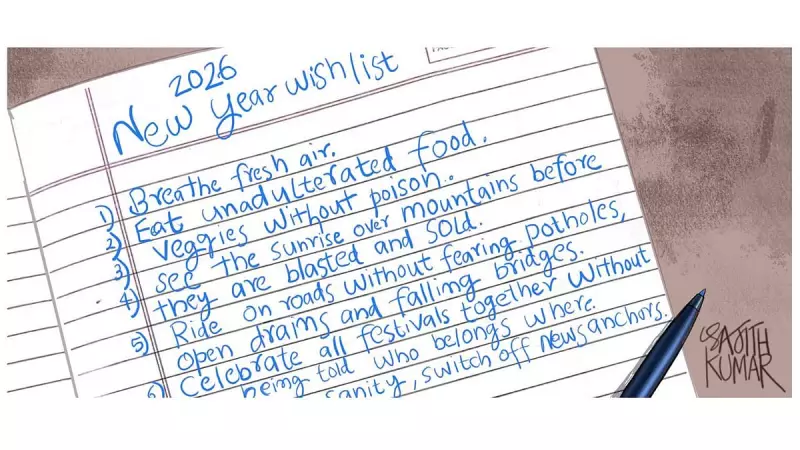 2026
New Year wishlist
1) Breathe fresh air.
2) Eat unadulterated food.
3) Veggies without poison.
4) See the sunrise over mountains before
they are blasted and sold.
5) Ride on roads without fearing potholes,
open drains and falling bridges.
6) Celebrate all festivals together without
being told who belongs where.
sanity, switch off news anchors.
SAJITH
KUMAR